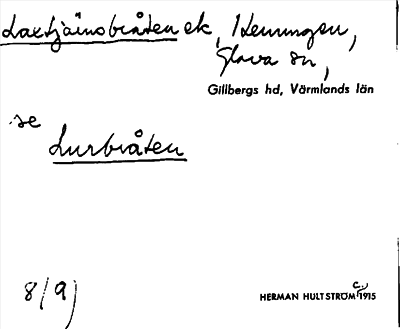 Laxtjärnsbråten ek, 1 Henningsn,
Glava sn,
Gillbergs hd, Värmlands län
se
Lurbråten
8/9)
HERMAN HULTSTRÖM c. 1915